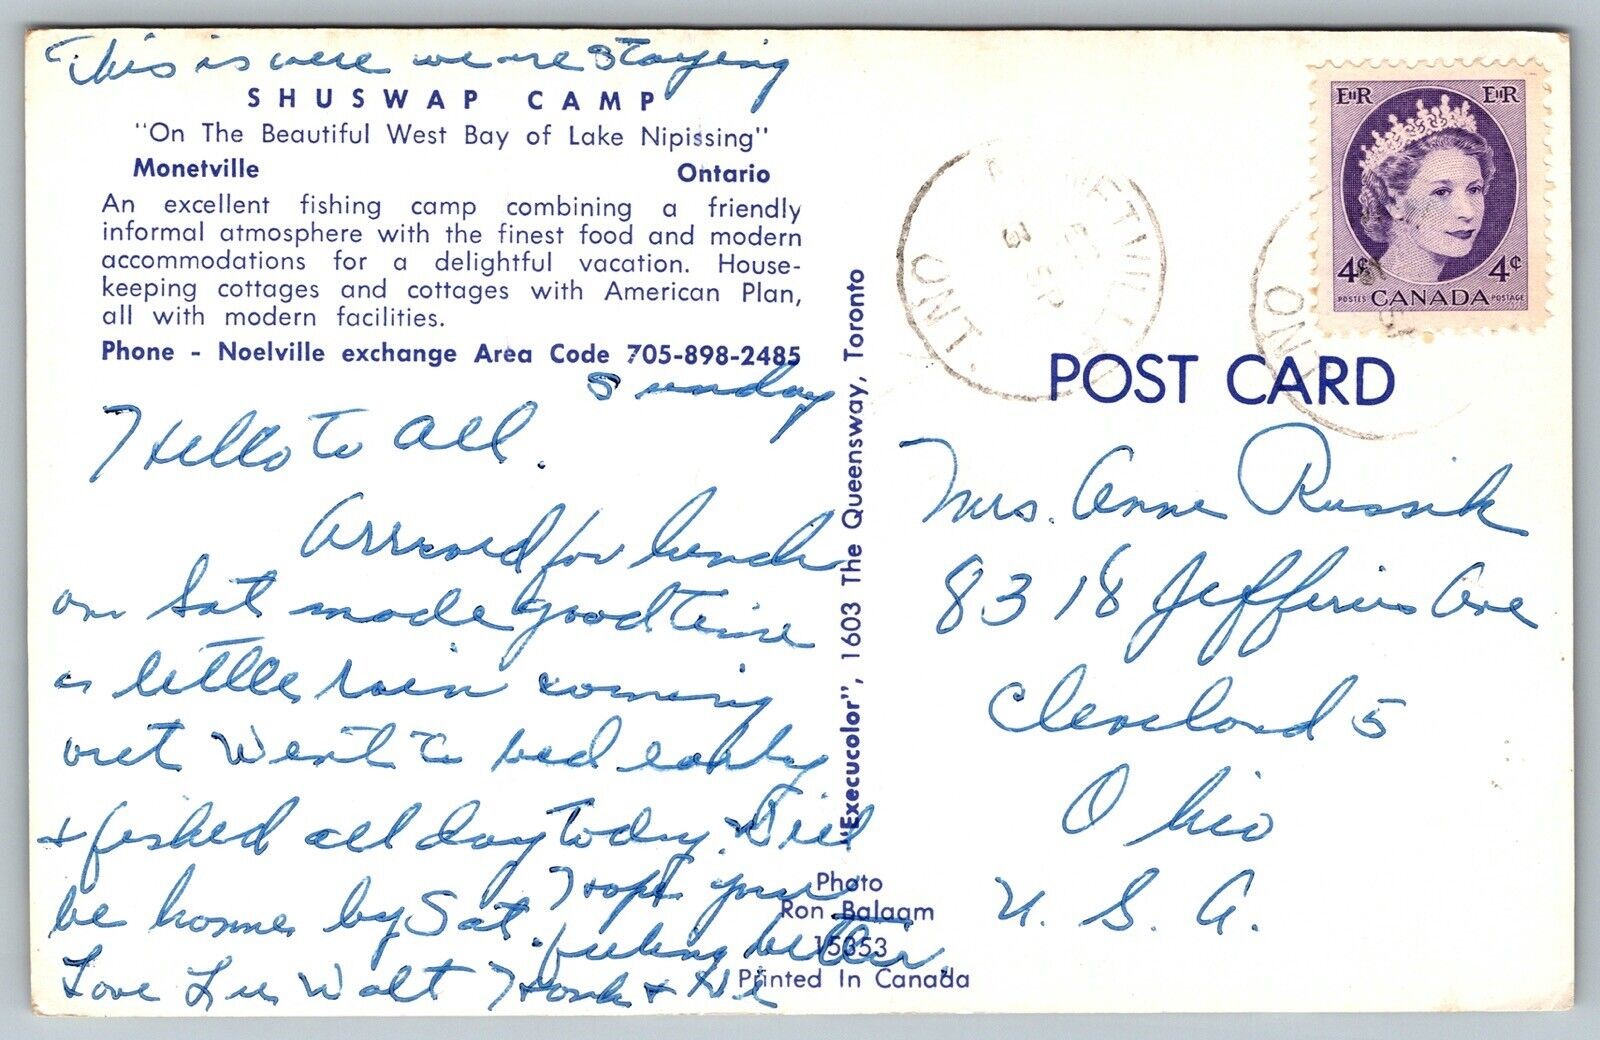 This is were we're staying
SHUSWAP CAMP
"On The Beautiful West Bay of Lake Nipissing"
Monetville Ontario
An excellent fishing camp combining a friendly
informal atmosphere with the finest food and modern
accommodations for a delightful vacation. House-
keeping cottages and cottages with American Plan,
all with modern facilities.
Phone - Noelville exchange Area Code 705-898-2485
Sunday
Hello to all.
Arrived for lunch
on Sat made good time
a little rain coming
out Went to bed early
+ fished all day today. Will
be home by Sat. Hope your
feeling better.
Love Lee Walt Hank +
"Execucolor", 1603 The Queensway, Toronto
Photo
Ron Balaam
15353
Printed In Canada
MONETVILLE
ONT.
EIIR EIIR
4¢ 4¢
POSTES CANADA POSTAGE
ONT
POST CARD
Mrs. Anne Russik
8318 Jefferies Ave
Cleveland 5
Ohio
U. S. A.